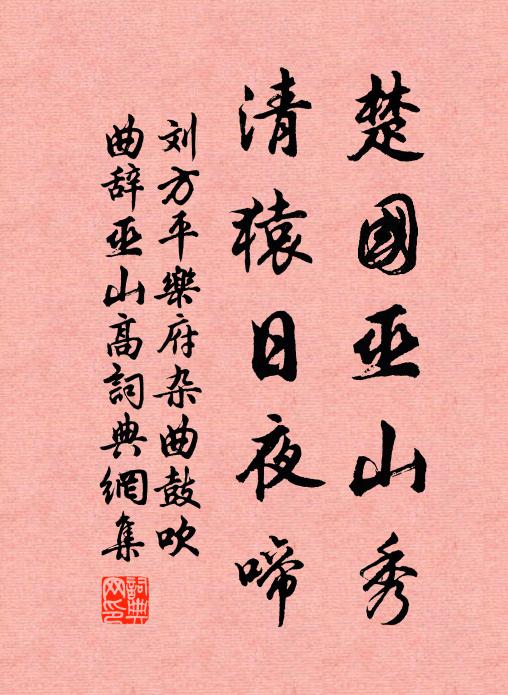 楚國巫山秀
清猿日夜啼
刘方平樂府杂曲鼓吹
曲辞巫山高詞典網集
詞典網印